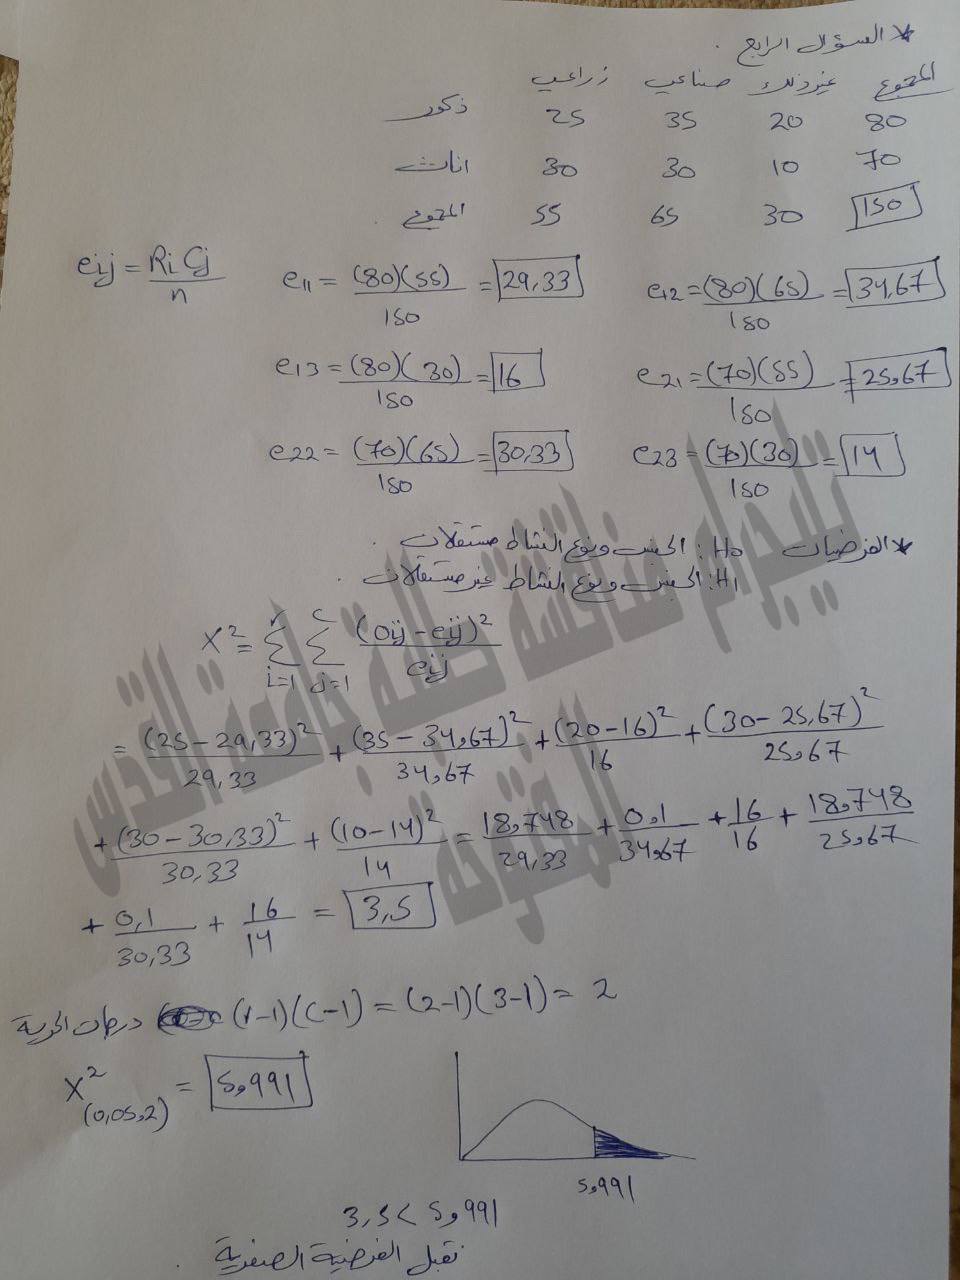 * السؤال الرابع .
زراعي صناعي غير ذلك المجموع
ذكور 25 35 20 80
اناث 30 30 10 70
المجموع 55 65 30 150
eij = Ri Cj / n e11 = (80)(55) / 150 = 29,33 e12 = (80)(65) / 150 = 34,67
e13 = (80)(30) / 150 = 16 e21 = (70)(55) / 150 = 25,67
e22 = (70)(65) / 150 = 30,33 e23 = (70)(30) / 150 = 14
* الفرضيات H0 : الجنس ونوع النشاط مستقلان .
H1 : الجنس ونوع النشاط غير مستقلان .
X² = Σ i=1 r Σ j=1 c (Oij - eij)² / eij
= (25 - 29,33)² / 29,33 + (35 - 34,67)² / 34,67 + (20 - 16)² / 16 + (30 - 25,67)² / 25,67
+ (30 - 30,33)² / 30,33 + (10 - 14)² / 14 = 18,748 / 29,33 + 0,1 / 34,67 + 16 / 16 + 18,748 / 25,67
+ 0,1 / 30,33 + 16 / 14 = 3,5
درجات الحرية (r-1)(c-1) = (2-1)(3-1) = 2
X² (0,05,2) = 5,991
5,991
3,5 < 5,991
نقبل الفرضية الصفرية .
تيليجرام مناقشة طلبة جامعة القدس
المفتوحة